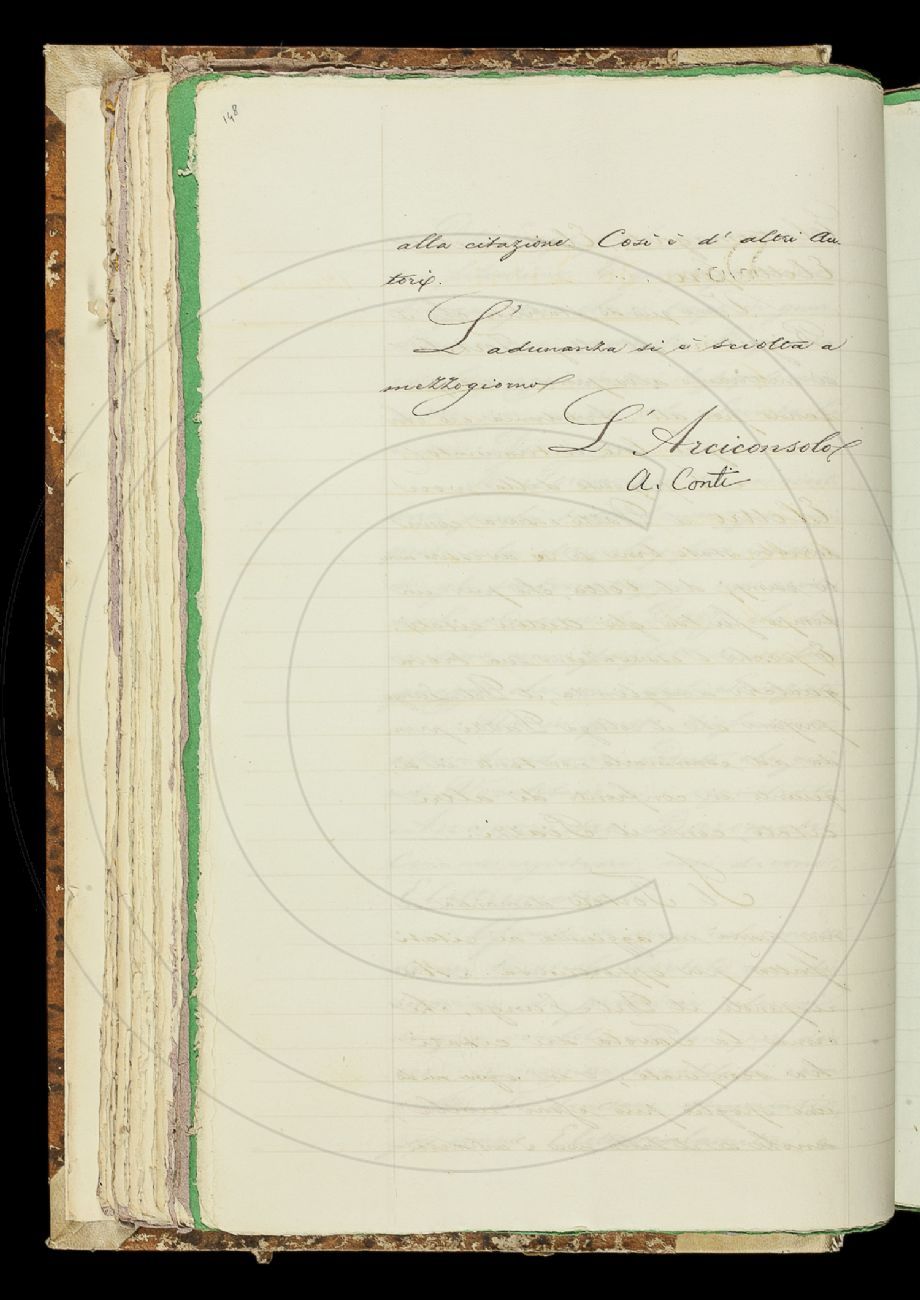 148
alla citazione. Così è d' altri Au-
tori.
L'adunanza si è sciolta a
mezzogiorno
L' Arciconsolo
A. Conti